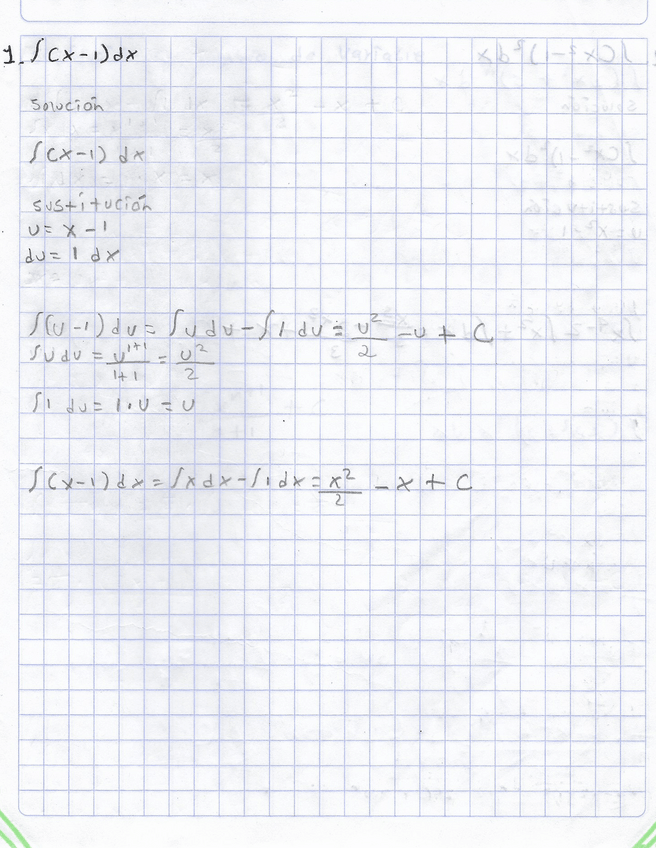 1. ∫(x-1)dx
Solución
∫(x-1) dx
sustitución
u= x-1
du= 1 dx
∫(u-1) du= ∫u du-∫1 du= u²/2 -u + C
∫u du = u¹⁺¹/1+1 = u²/2
∫1 du= 1·u = u
∫(x-1) dx = ∫x dx-∫1 dx= x²/2 - x + C